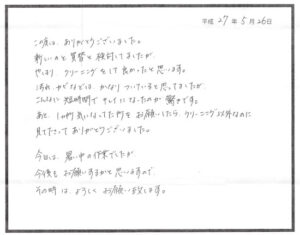 平成 27年 5月 26日
この度は、ありがとうございました。
新しいのと買替と検討してましたが、
やはり、クリーニングをして良かったと思います。
汚れ、カビなどは、かなりついていると思ってましたが、
こんなに短時間でキレイになったのが驚きです。
あと、1ヶ所気になってた所をお願いしたら、クリーニング以外なのに
見て下さってありがとうございました。
今日は、暑い中の作業でしたが、
今後もお願いするかと思いますので、
その時は、よろしくお願い致します。